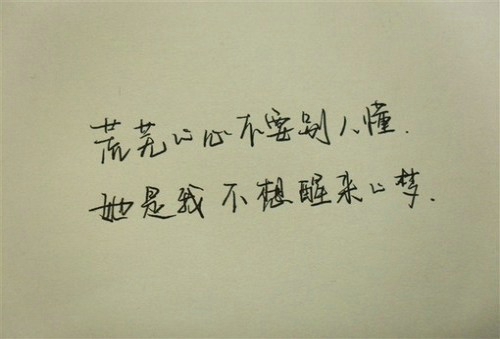 荒芜心心不要别人懂.
她是我不想醒来心梦.